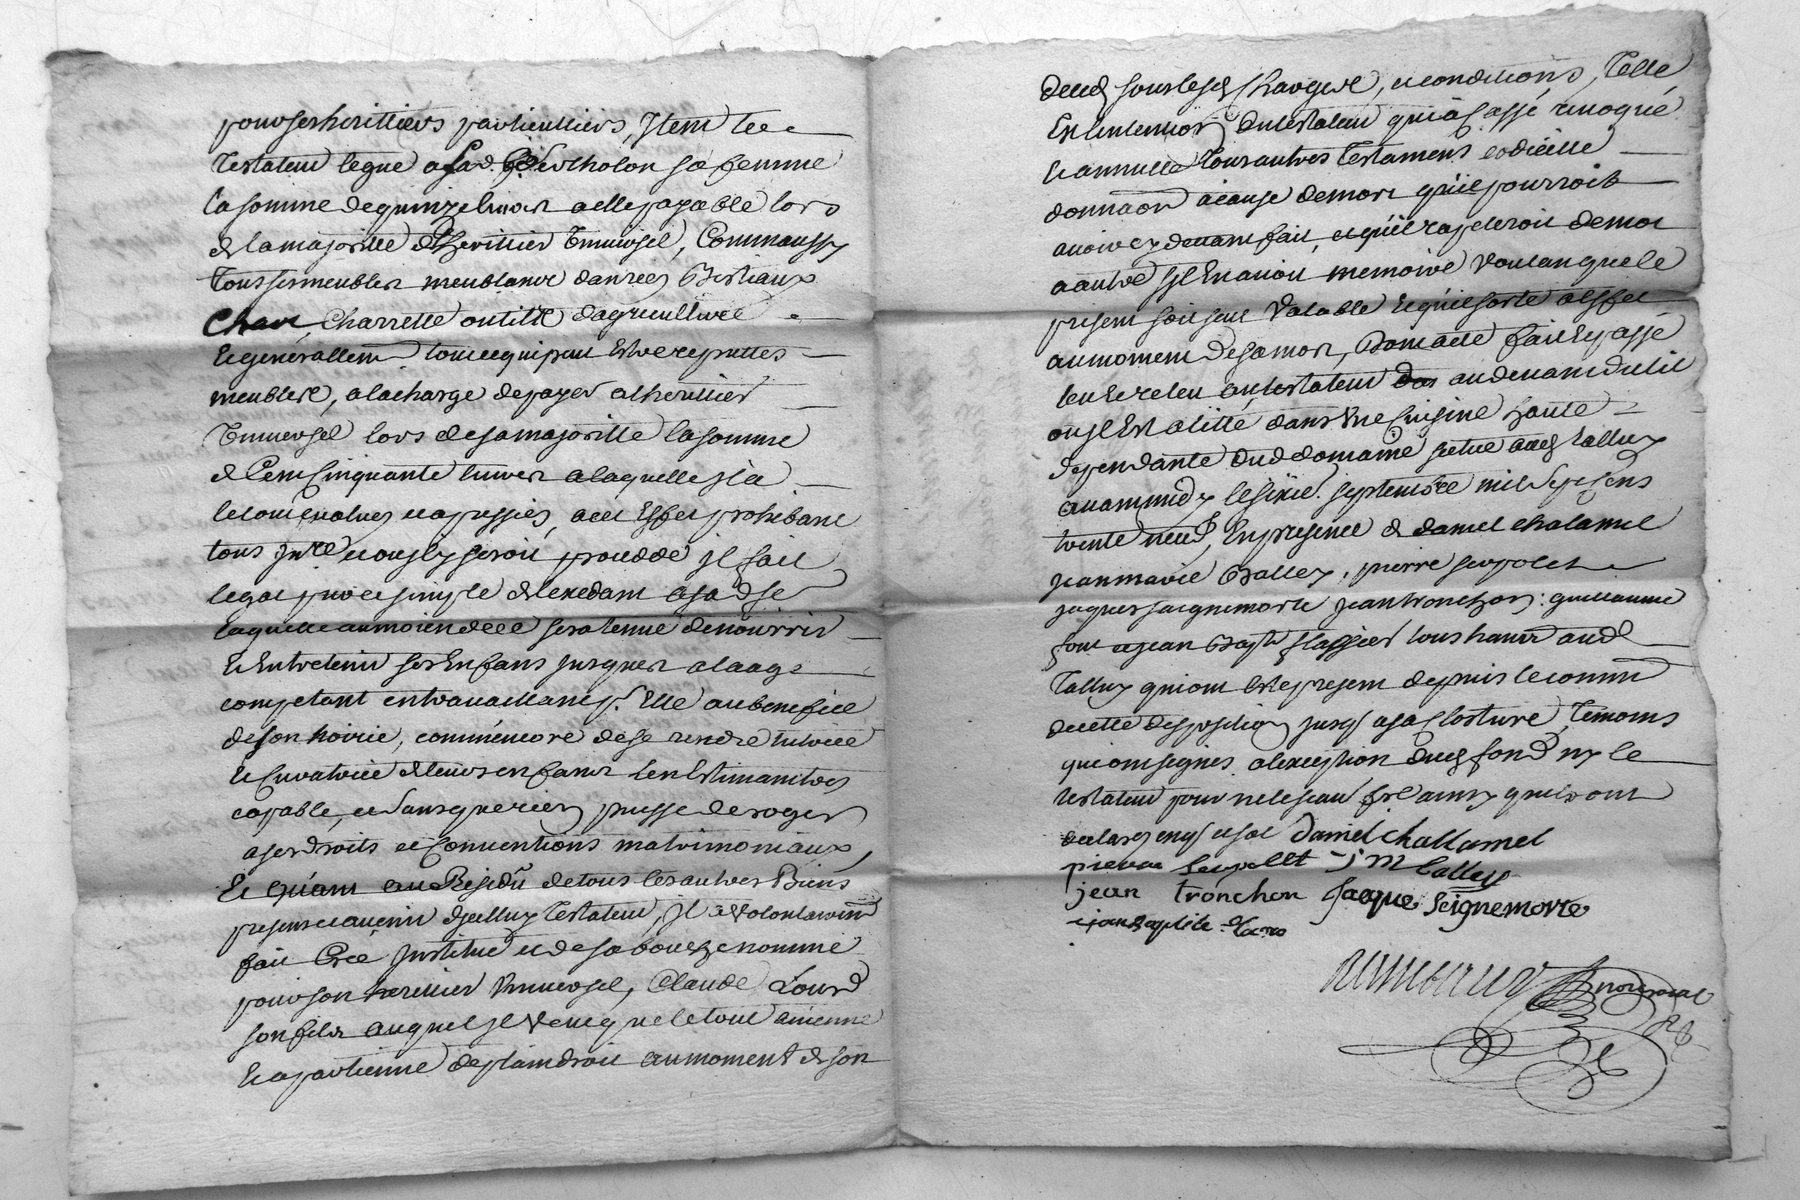 pour ses herittiers particulliers, Item le
Testateur legue a sa femme
la somme de quinze livres a elle payable lors
de la majoritté de l'herittier Universel, Comm'aussy
tous ses meubles meublants danrées Bestiaux
Charrette outills d'agriculture
et generallement tout ce qui peut Estre reputtés
meubles, a la charge de payer a l'herittier
Universel lors de sa majoritté la somme
de Cent Cinquante livres a laquelle il a
le tout evalués et apressiés, a cet Effet prohibant
tous Inre et ou il y seroit proceddé il fait
legat pur et simple de l'exedant a sad fe
laquelle au moien de ce sera tenue de nourrir
et Entretenir ses Enfans jusques a l'aage
competant en travaillant p. Elle au benefice
de son hoirie, comm'encore de se rendre tutrice
et Curatrice de leurs enfans l'en Estimant tres
capable, et sans que rien puisse deroger
a ses droits et Conventions matrimoniaux,
Et quant au Residû de tous les autres Biens
presents et avenir d'icelluy Testateur, Il a volontairemt
fait Créé Institué et de sa bouche nommé
pour son herittier Universel, Claude Lourd
son fils auquel il veut que le tout avienne
et apartienne de plain droit au moment de son
deced sous lesd Charges, et conditions, Telle
Est l'intention du testateur qui a Cassé revoqué
et annullé Tous autres Testamens codicille
donnaon a cause de mort qu'il pourroit
avoir cy devant fait, et qu'il rapeleroit de mot
a autre s'il En avoit memoire Voulant que le
present soit seul Valable et qu'il sorte a Effet
au moment de sa mort, Dont acte fait et passé
leu et releu au testateur au devant du lit
ou il Est alitté dans Une Cuisine haute
dependante dud domaine scitué aud Talluy
avant midy le sixie. septembre mil sept Cens
trente neuf, En presence de daniel chalamel
jean marie Balley, pierre serpolet
jaques saignemorte jean tronchon: guillaume
font et jean Bapte flassier tous hants aud
Talluy qui ont Esté present depuis le commt
de cette disposition jusq a sa Closture, Temoins
qui ont signés a l'exception dud fond ny le
testateur pour ne le scavoir fre ainsy qu'ils ont
declarés enquis daniel challamel
pierre Serpollet j m balley
jean tronchon Jaque Seignemorte